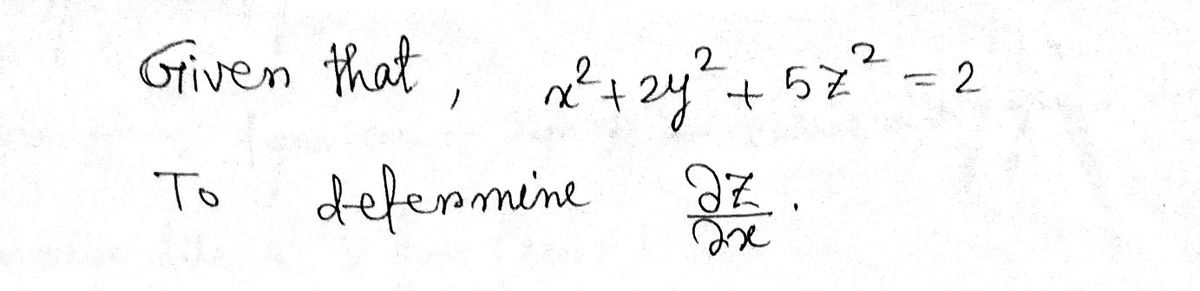 Given that, x² + 2y² + 5z² = 2
To determine ∂z/∂x.